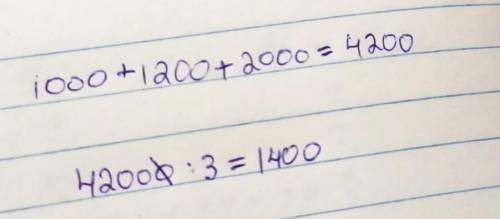 1000+1200+2000=4200
4200:3=1400